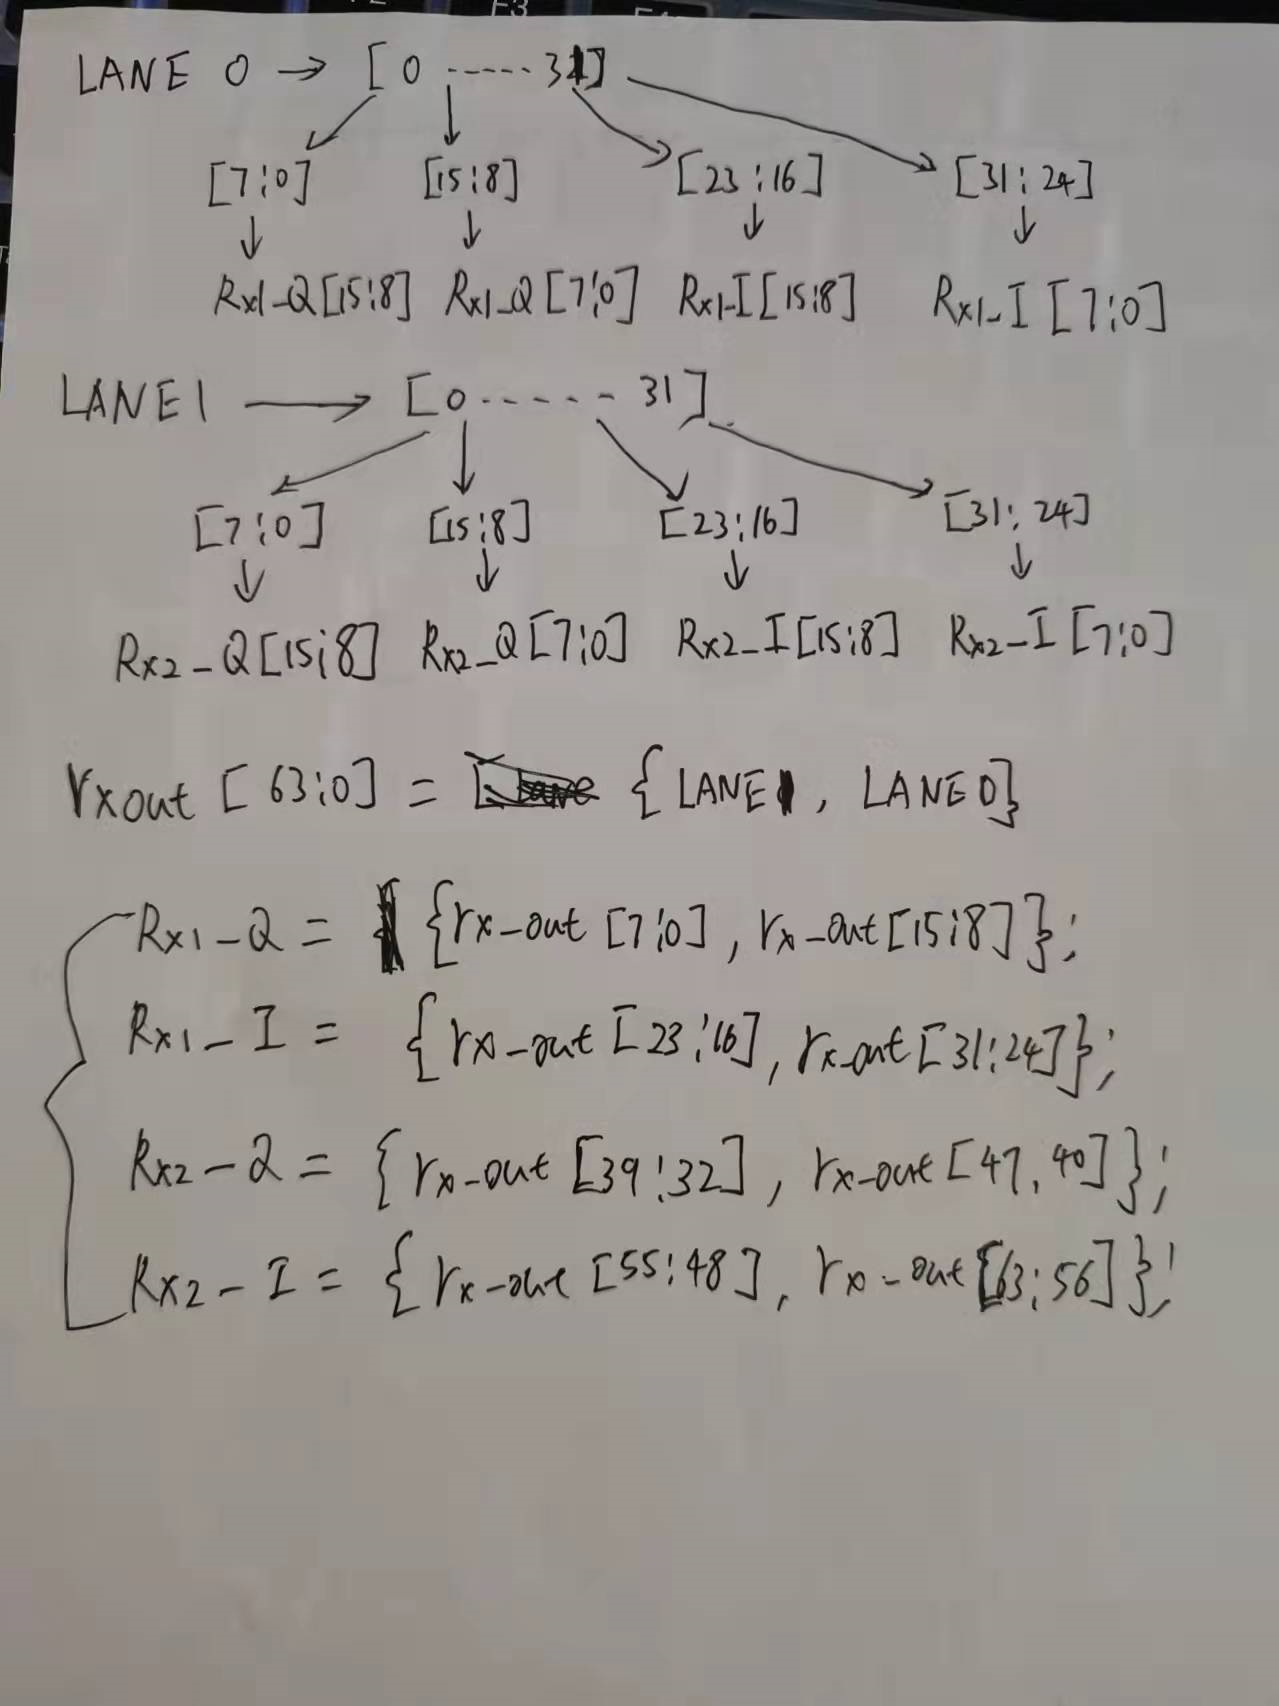 F3
LANE 0 → [ 0 ----- 31]
[7:0] [15:8] [23:16] [31:24]
Rx1-Q[15:8] Rx1-Q[7:0] Rx1-I[15:8] Rx1-I[7:0]
LANE1 → [0 ----- 31]
[7:0] [15:8] [23:16] [31:24]
Rx2-Q[15:8] Rx2-Q[7:0] Rx2-I[15:8] Rx2-I[7:0]
rxout [63:0] = {LANE1, LANE0}
Rx1-Q = {rx-out [7:0], rx-out[15:8]};
Rx1-I = {rx-out [23:16], rx-out[31:24]};
Rx2-Q = {rx-out [39:32], rx-out[47,40]};
Rx2-I = {rx-out [55:48], rx-out[63:56]};